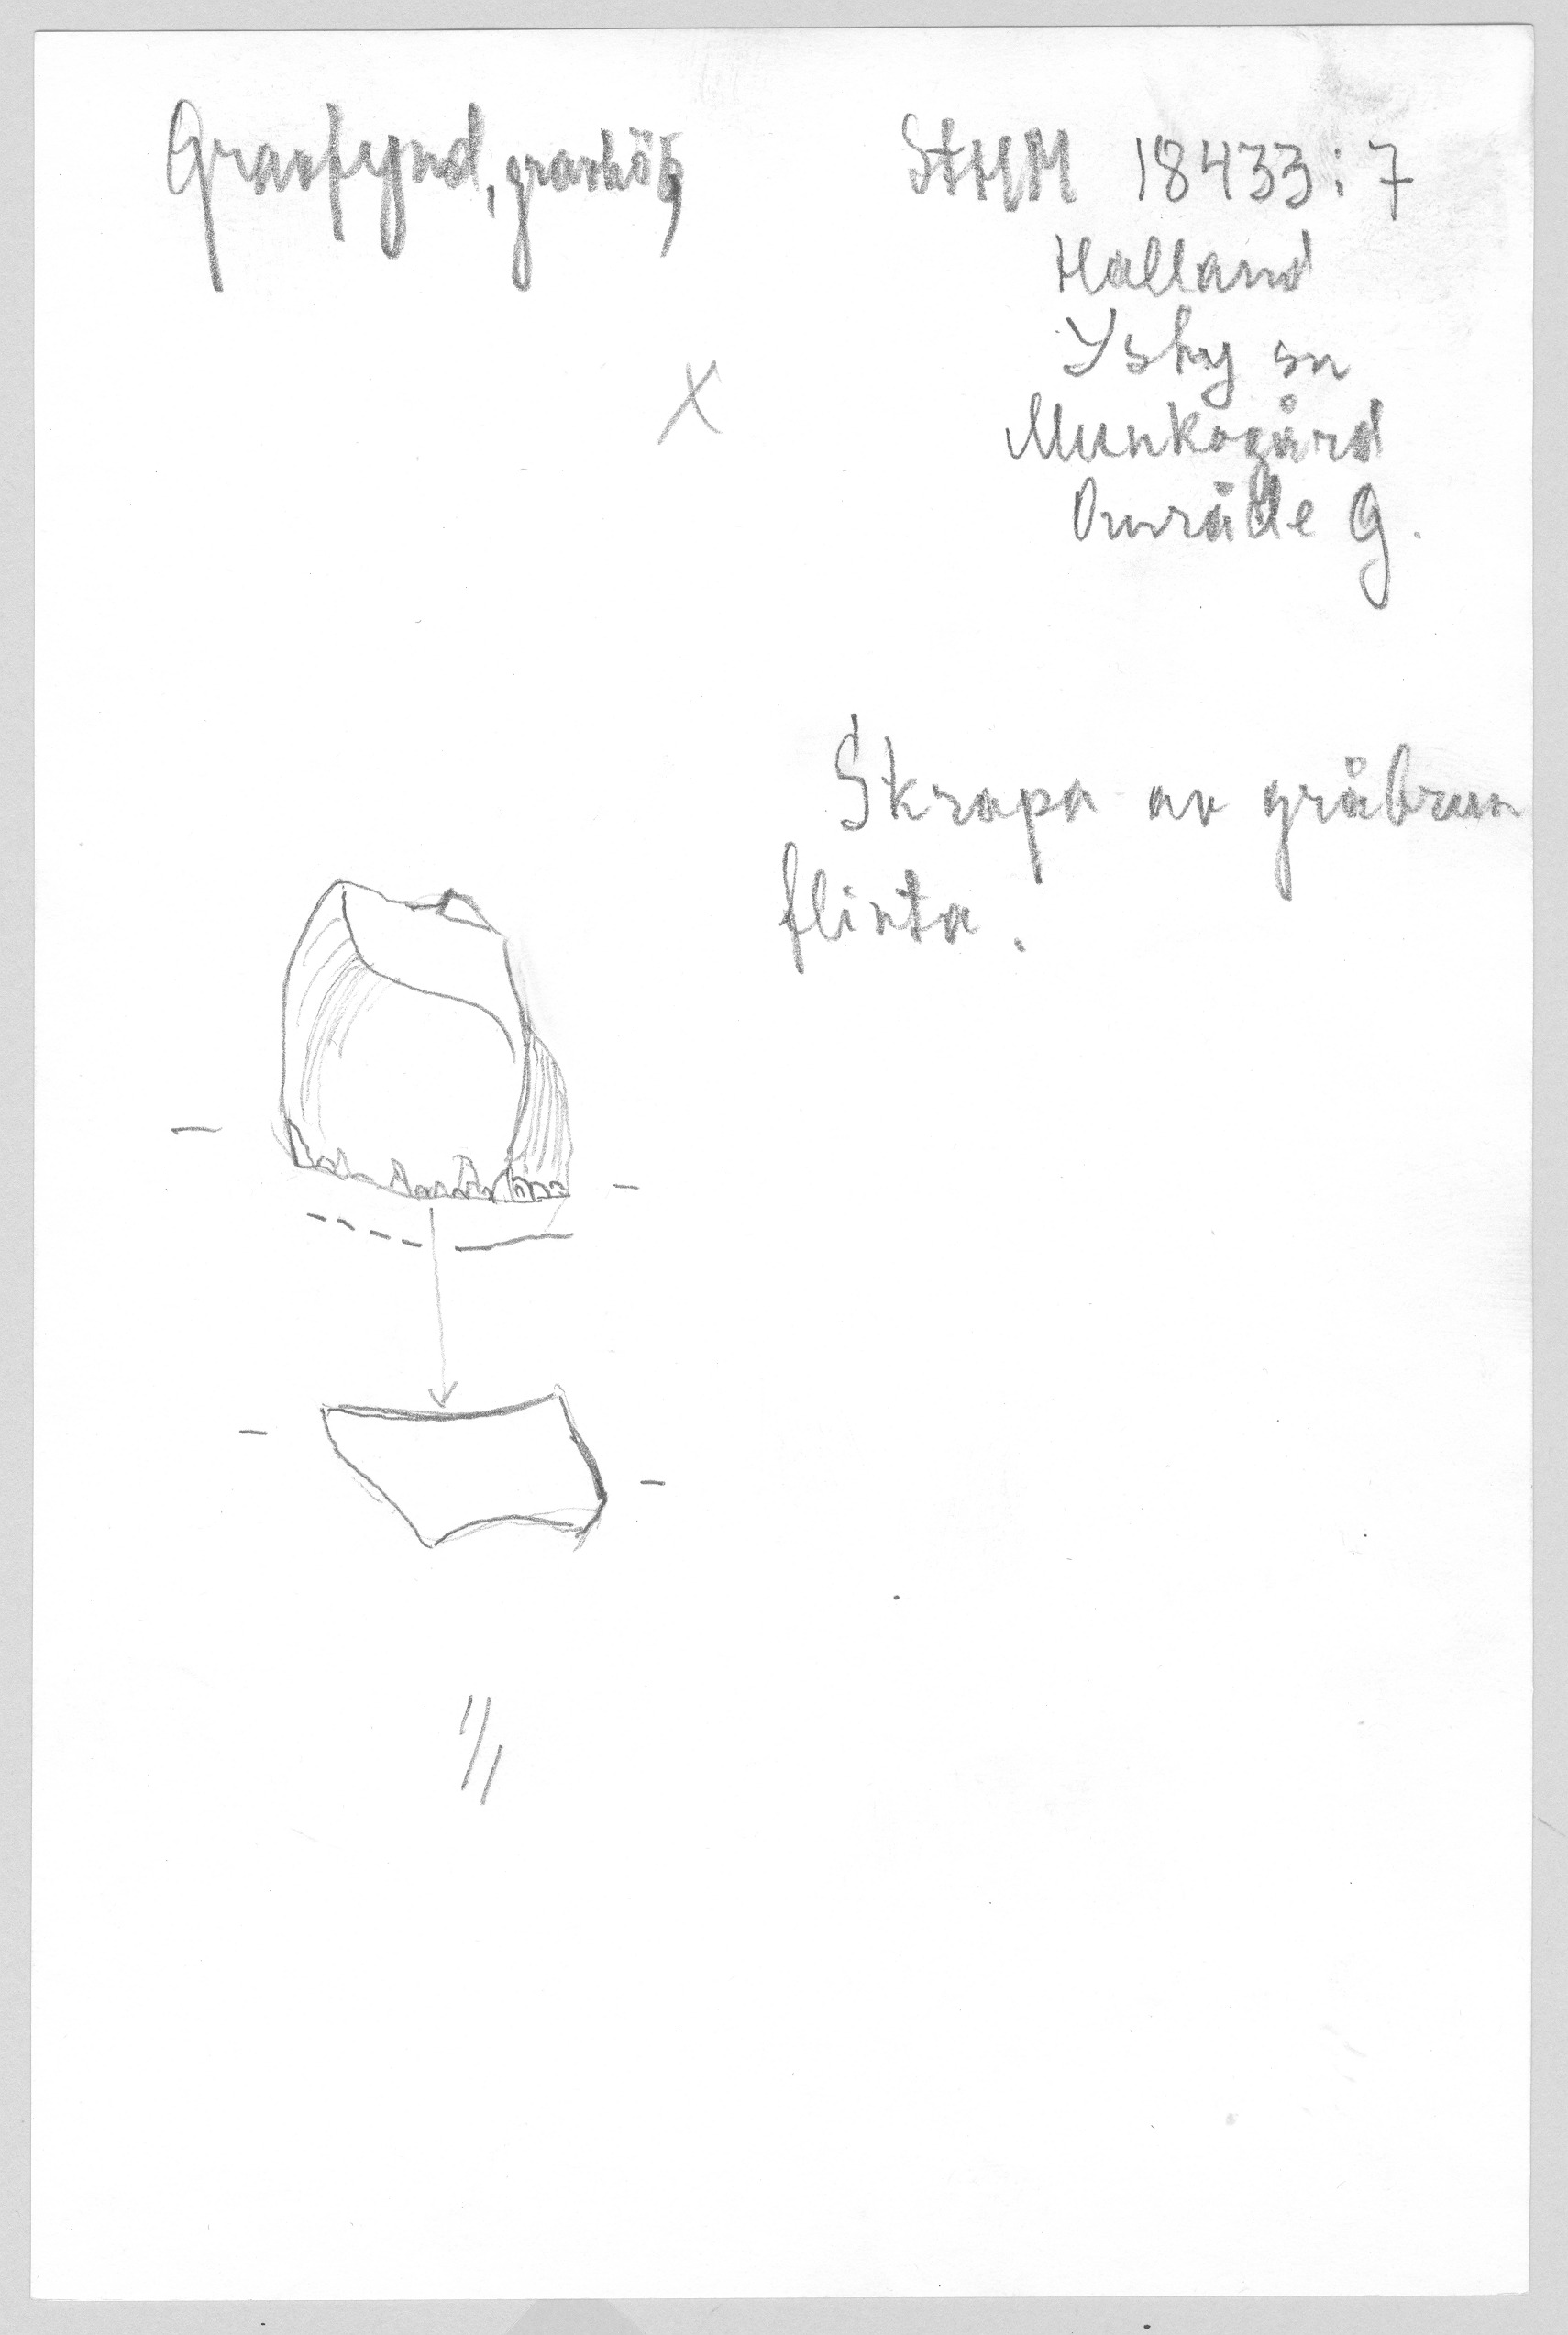 Gravfynd, gravhög
StHM 18433:7
Halland
Ysby sn
Munkagård
Område G.
X
Skrapa av gråbrun
flinta.
1/1